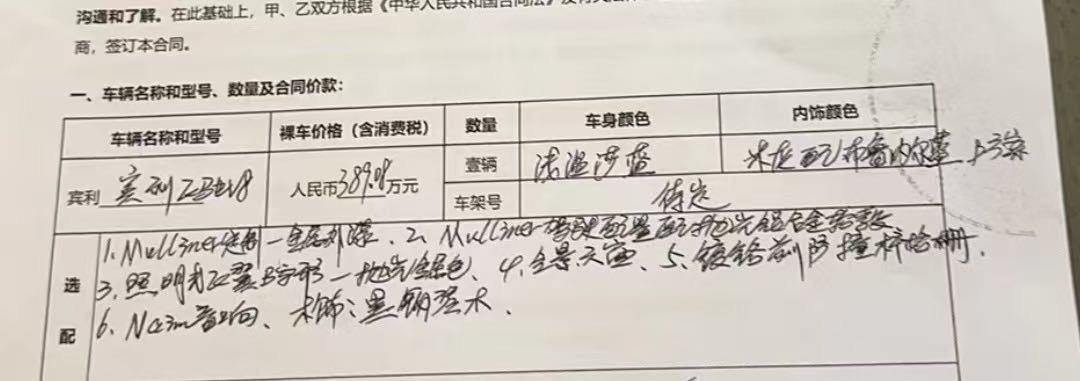 沟通和了解。在此基础上，甲、乙双方根据《中华人民共和国合同法》及有关法
商，签订本合同。
一、车辆名称和型号、数量及合同价款：
车辆名称和型号 裸车价格（含消费税） 数量 车身颜色 内饰颜色
宾利 宾利 V8 人民币389.08万元 壹辆 蓝 配布鲁内尔蓝
车架号 待定
选配
1、Mulliner定制一金属外漆、2、Mulliner 驾驶配置配抛光铝合金轮毂
3、照明飞翼B字形一抛光银色、4、全景天窗、5、镀铬前防撞杆格栅、
6、Naim音响、木饰：黑钢琴木、